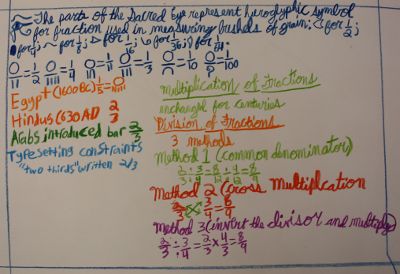 The parts of the Sacred Eye represent hieroglyphic symbol
for fraction used in measuring bushels of grain: for 1/2;
for 1/4; for 1/8; for 1/16; for 1/32; for 1/64.
= 1/2 = 1/4 = 1/5 = 1/3 = 1/10 = 1/100
Egypt (1600 BC) 1/5 =
Hindus (630 AD 2/3
Arabs introduced bar 2/3
Typesetting constraints
"two thirds" written 2/3
Multiplication of Fractions
unchanged for centuries
Division of Fractions
3 methods
Method 1 (common denominator)
Method 2 (Cross Multiplication
2/3 3/4 = 8/9
Method 3 (invert the divisor and multiply)
2/3 ÷ 3/4 = 2/3 x 4/3 = 8/9